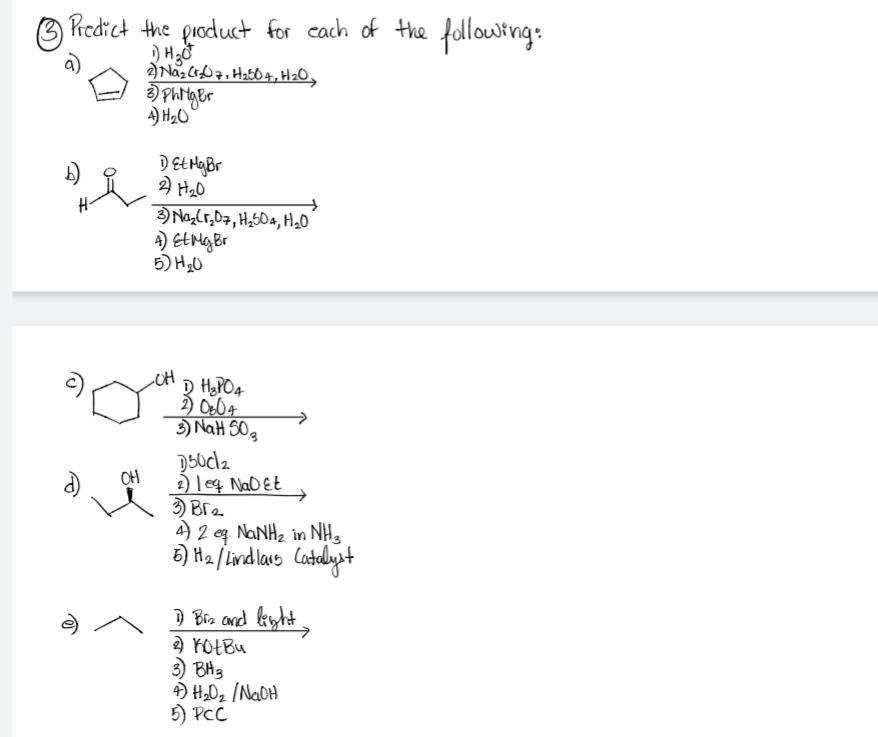 ③ Predict the product for each of the following:
a)
1) H3O+
2) Na2Cr2O7, H2SO4, H2O
3) PhMgBr
4) H2O
b)
O
H
1) EtMgBr
2) H2O
3) Na2Cr2O7, H2SO4, H2O
4) EtMgBr
5) H2O
c)
OH
1) H3PO4
2) OsO4
3) NaHSO3
d)
OH
1) SOCl2
2) 1 eq NaOEt
3) Br2
4) 2 eq NaNH2 in NH3
5) H2/Lindlars Catalyst
e)
1) Br2 and light
2) KOtBu
3) BH3
4) H2O2 /NaOH
5) PCC